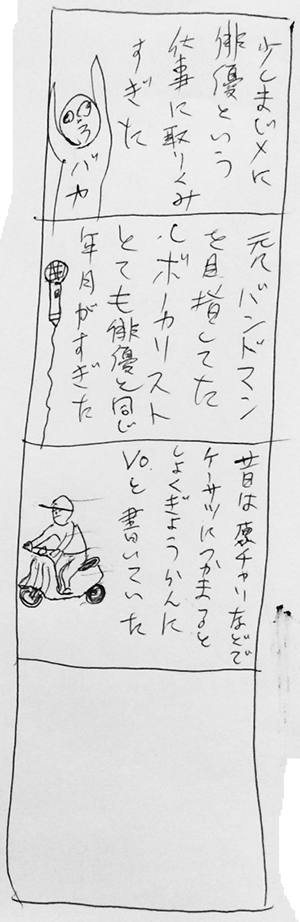 少しまじメに
俳優という
仕事に取りくみ
すぎた
バカ
元バンドマン
を目指してた
ボーカリスト
とても俳優と同じ
年月がすぎた
昔は原チャリなどで
ケーサツにつかまると
しょくぎょうかんに
Vo.と書いていた